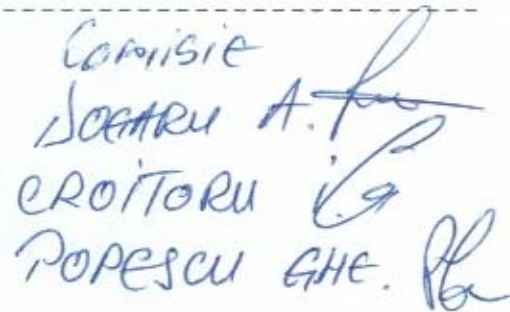 Comisie
DOGARU A.
CROITORU I.
POPESCU GHE.